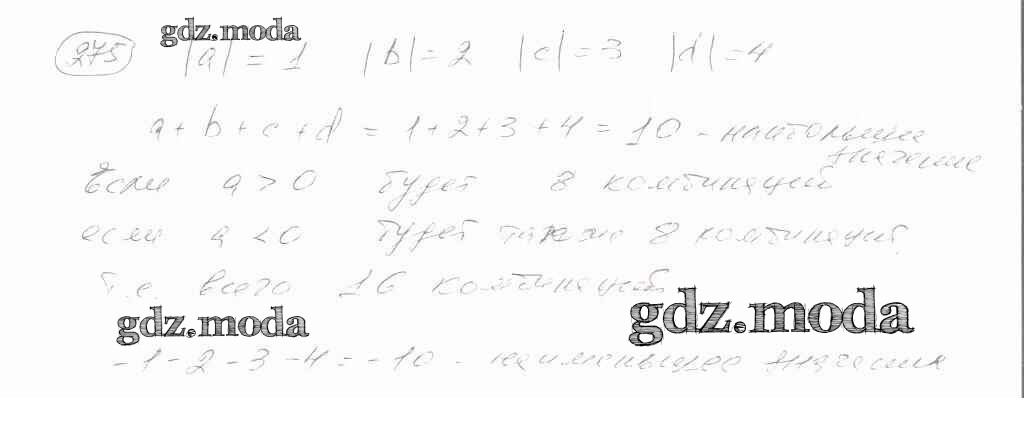 gdz.moda
275 |a| = 1 |b| = 2 |c| = 3 |d| = 4
a + b + c + d = 1 + 2 + 3 + 4 = 10 - наибольшее
значение
Если a > 0 будет 8 комбинаций
если a < 0 будет также 8 комбинаций.
т.е. всего 16 комбинаций
gdz.moda gdz.moda
-1 - 2 - 3 - 4 = -10 - наименьшее значение